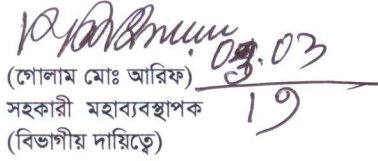 ০৭.০৩
১৭
(গোলাম মোঃ আরিফ)
সহকারী মহাব্যবস্থাপক
(বিভাগীয় দায়িত্বে)